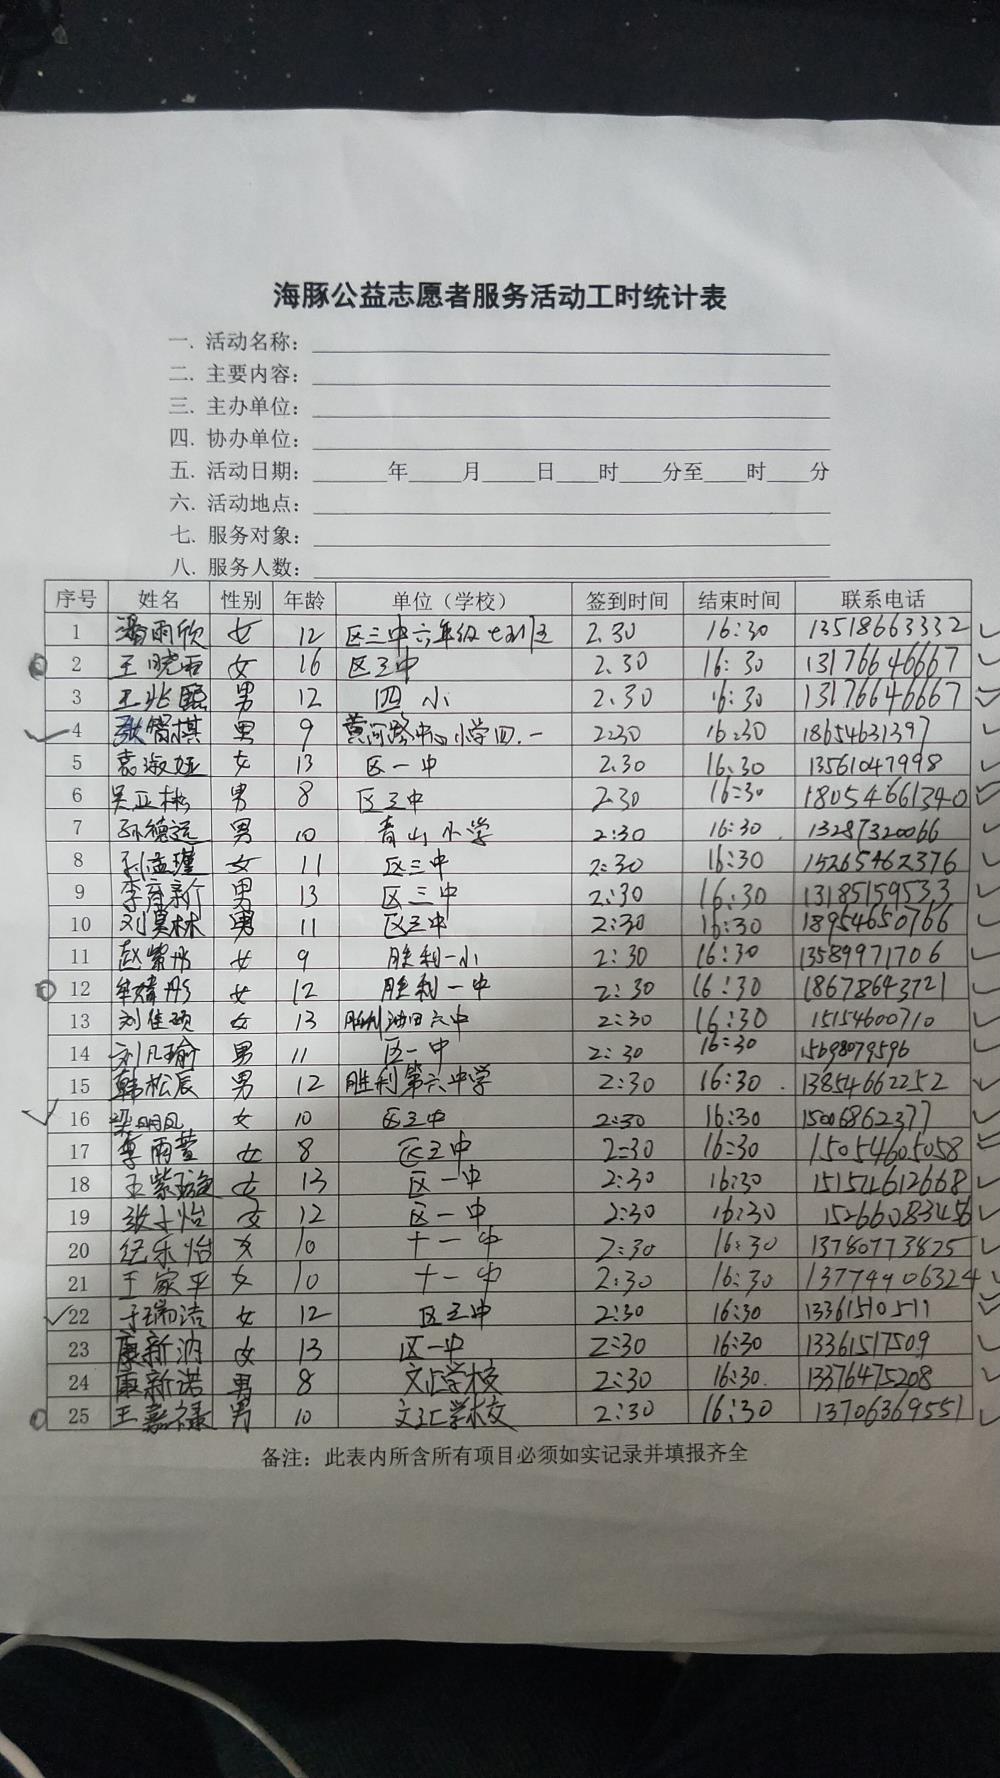 海豚公益志愿者服务活动工时统计表
一. 活动名称：
二. 主要内容：
三. 主办单位：
四. 协办单位：
五. 活动日期： 年 月 日 时 分至 时 分
六. 活动地点：
七. 服务对象：
八. 服务人数：
序号 姓名 性别 年龄 单位（学校） 签到时间 结束时间 联系电话
1 潘雨欣 女 12 区三中六年级七班 2.30 16:30 13518663332
2 王晓雨 女 16 区三中 2.30 16:30 13176646667
3 王兆熙 男 12 四小 2.30 16:30 13176646667
4 张智棋 男 9 黄河路中心小学四.一 2:30 16:30 18654631397
5 袁淑娅 女 13 区一中 2.30 16.30 13561047998
6 吴正彬 男 8 区三中 2.30 16:30 18054661340
7 孙德远 男 10 青山小学 2:30 16:30 13287320066
8 孙孟瑾 女 11 区三中 2:30 16:30 15265462376
9 李彦新 男 13 区三中 2:30 16:30 13185159533
10 刘昊林 男 11 区三中 2:30 16:30 18954650766
11 赵紫彤 女 9 胜利一小 2:30 16:30 13589971706
12 牟婧彤 女 12 胜利一中 2:30 16:30 18678643721
13 刘佳硕 女 13 胜利油田六中 2:30 16:30 15154600710
14 刘凡瑜 男 11 区一中 2:30 16:30 15698079596
15 韩松辰 男 12 胜利第六中学 2:30 16:30 13854662252
16 梁明凤 女 10 区三中 2:30 16:30 15006862377
17 李雨萱 女 8 区三中 2:30 16:30 15054605058
18 王紫璇 女 13 区一中 2:30 16:30 15154612668
19 张子怡 女 12 区一中 2:30 16:30 15266083456
20 纪乐怡 女 10 十一中 2:30 16:30 13780773825
21 王家平 女 10 十一中 2:30 16:30 13774906324
22 于瑞洁 女 12 区三中 2:30 16:30 13361510511
23 康新汭 女 13 区一中 2:30 16:30 13361517509
24 康新诺 男 8 文汇学校 2:30 16:30 13376475208
25 王嘉禄 男 10 文汇学校 2:30 16:30 13706369551
备注：此表内所含所有项目必须如实记录并填报齐全